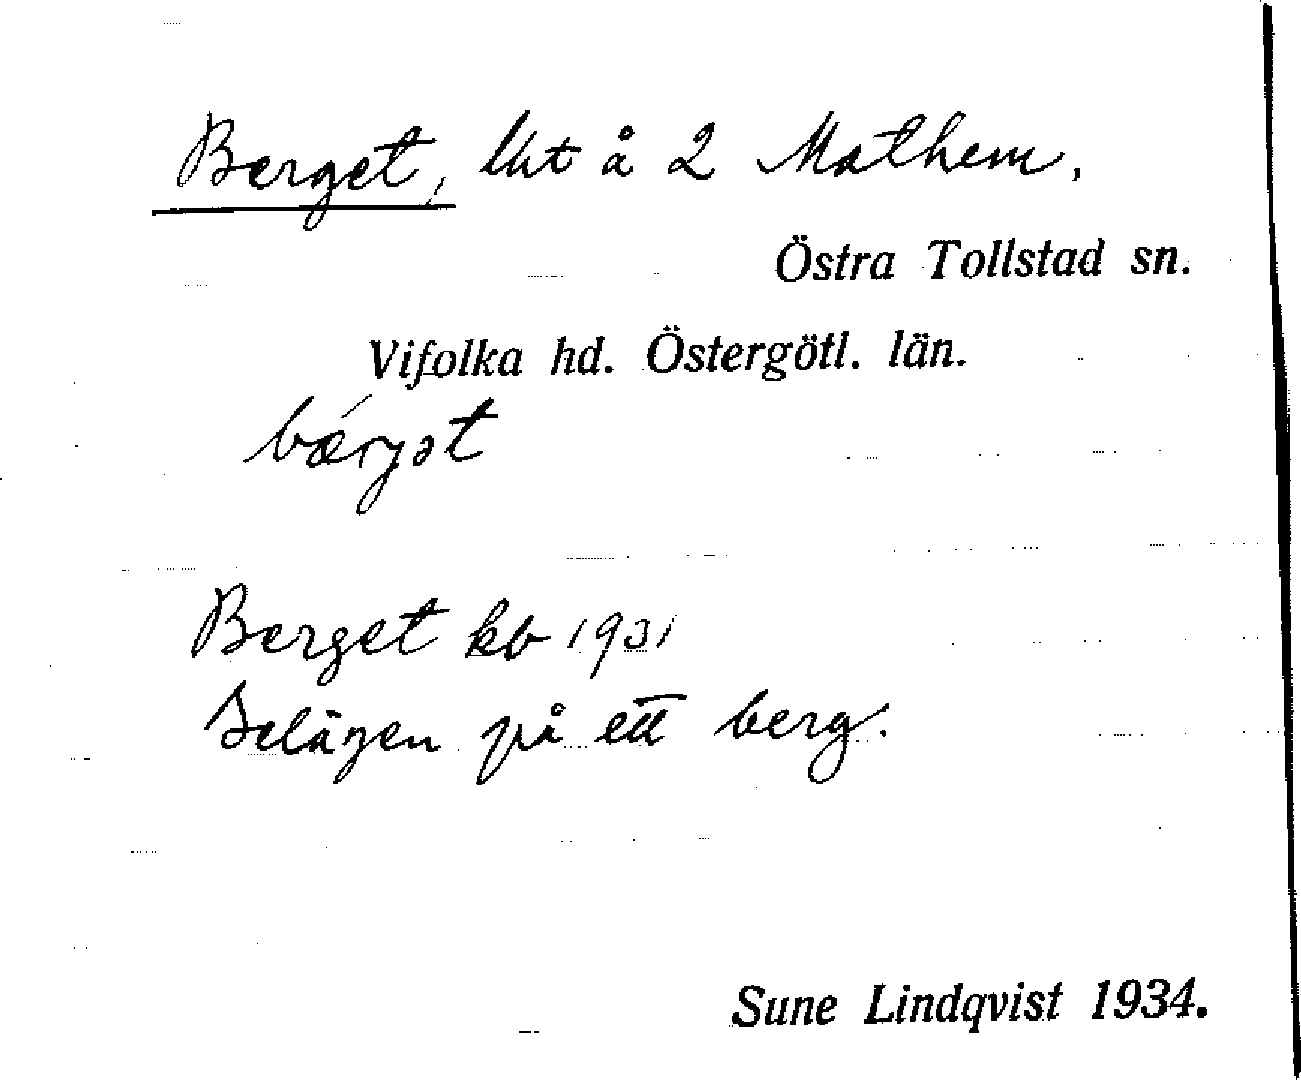 Berget, lht å 2 Mathem,
Östra Tollstad sn.
Vifolka hd. Östergötl. län.
bærjət
Berget kb 1931
Belägen på ett berg.
Sune Lindqvist 1934.